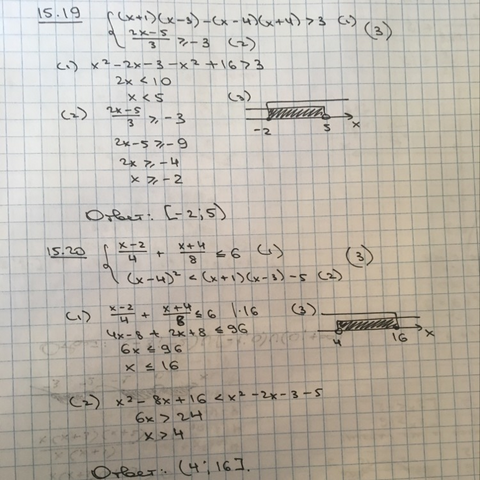 15.19 { (x+1)(x-3)-(x-4)(x+4)>3 (1) (3)
(2x-5)/3 ≥ -3 (2)
(1) x²-2x-3-x²+16>3
2x<10
x<5
(2) (2x-5)/3 ≥ -3 (3)
-2 5 x
2x-5 ≥ -9
2x ≥ -4
x ≥ -2
Ответ: [-2; 5)
15.20 { (x-2)/4 + (x+4)/8 ≤ 6 (1) (3)
(x-4)² < (x+1)(x-3)-5 (2)
(1) (x-2)/4 + (x+4)/8 ≤ 6 |·16 (3)
4 16 x
4x-8+2x+8 ≤ 96
6x ≤ 96
x ≤ 16
(2) x²-8x+16<x²-2x-3-5
6x>24
x>4
Ответ: (4; 16].